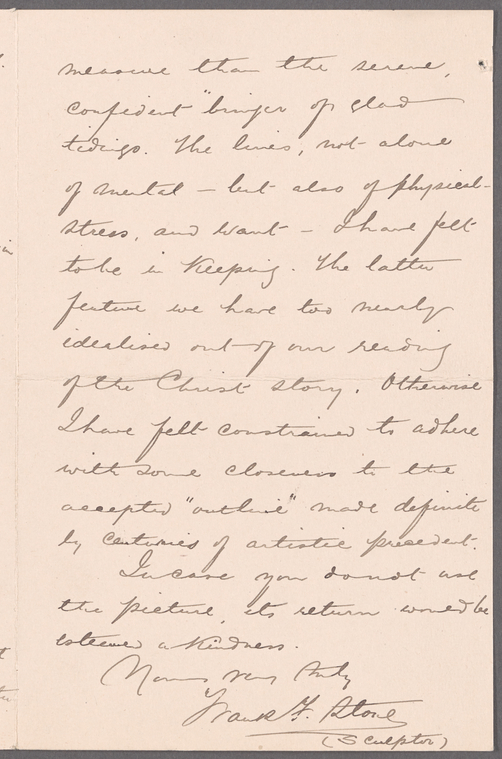 measure than the serene,
confident "bringer of glad
tidings. The lines, not alone
of mental – but also of physical-
stress, and want – I have felt
to be in Keeping. The latter
feature we have too nearly
idealised out of our reading
of the Christ story. Otherwise
I have felt constrained to adhere
with some closeness to the
accepted "outline" made definite
by centuries of artistic precedent.
In case you do not use
the picture, its return would be
esteemed a kindness.
Yours very truly
Frank F. Stone
(Sculptor)